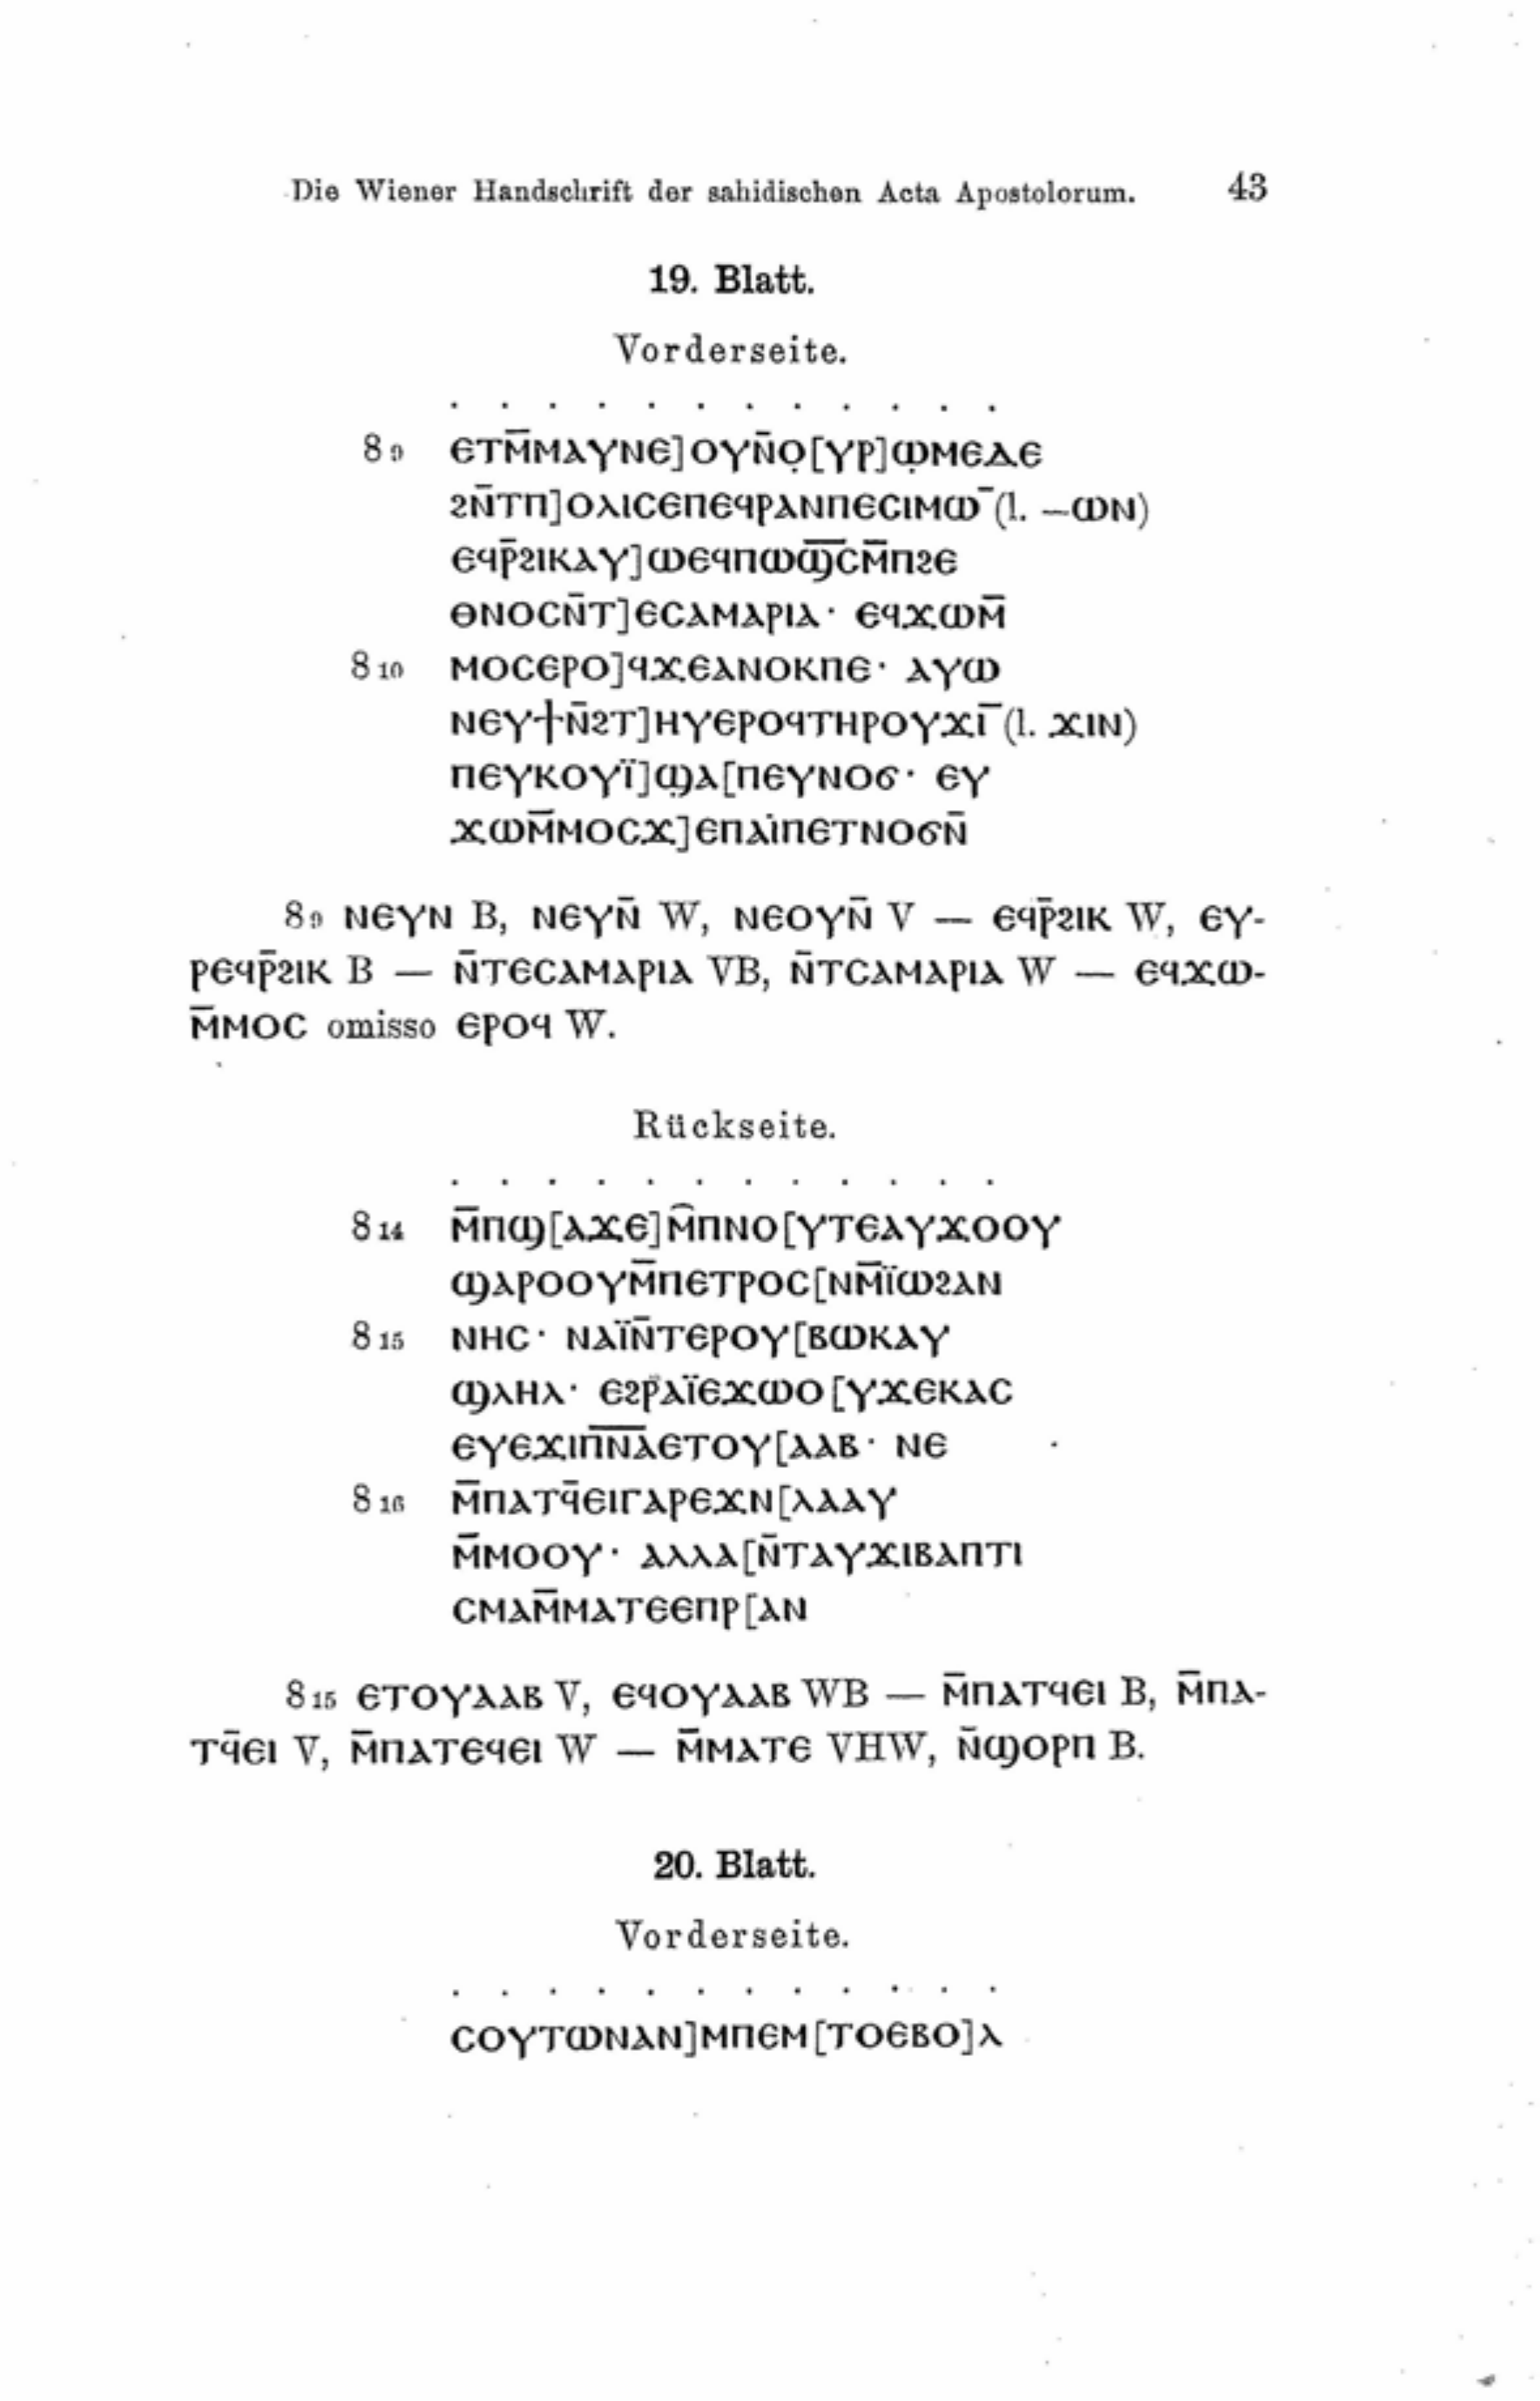 Die Wiener Handschrift der sahidischen Acta Apostolorum. 43
19. Blatt.
Vorderseite.
. . . . . . . . . . . .
8 9 ⲉⲧⲙ̄ⲙⲁⲩⲛⲉ]ⲟⲩⲛ̄ⲟ̣[ⲩⲣ]ⲱ̣ⲙⲉⲇⲉ
ϩⲛ̄ⲧⲡ]ⲟⲗⲓⲥⲉⲡⲉϥⲣⲁⲛⲡⲉⲥⲓⲙⲱ̄ (l. –ⲱⲛ)
ⲉϥⲣ̄ϩⲓⲕⲁⲩ]ⲱⲉϥⲡⲱϣ̄ⲥ̄ⲙ̄ⲡϩⲉ
ⲑⲛⲟⲥⲛ̄ⲧ]ⲉⲥⲁⲙⲁⲣⲓⲁ· ⲉϥϫⲱⲙ̄
8 10 ⲙⲟⲥⲉⲣⲟ]ϥϫⲉⲁⲛⲟⲕⲡⲉ· ⲁⲩⲱ
ⲛⲉⲩϯⲛ̄ϩⲧ]ⲏⲩⲉⲣⲟϥⲧⲏⲣⲟⲩϫⲓ̄ (l. ϫⲓⲛ)
ⲡⲉⲩⲕⲟⲩⲓ̈]ϣ̣ⲁ[ⲡⲉⲩⲛⲟϭ· ⲉⲩ
ϫⲱⲙ̄ⲙⲟⲥϫ]ⲉⲡⲁⲓ̈ⲡⲉⲧⲛⲟϭⲛ̄
8 9 ⲛⲉⲩⲛ B, ⲛⲉⲩⲛ̄ W, ⲛⲉⲟⲩⲛ̄ V — ⲉϥⲣ̄ϩⲓⲕ W, ⲉⲩ-
ⲣⲉϥⲣ̄ϩⲓⲕ B — ⲛ̄ⲧⲉⲥⲁⲙⲁⲣⲓⲁ VB, ⲛ̄ⲧⲥⲁⲙⲁⲣⲓⲁ W — ⲉϥϫⲱ-
ⲙ̄ⲙⲟⲥ omisso ⲉⲣⲟϥ W.
Rückseite.
. . . . . . . . . . . .
8 14 ⲙ̄ⲡϣ[ⲁϫⲉ]ⲙ̂ⲡⲛⲟ[ⲩⲧⲉⲁⲩϫⲟⲟⲩ
ϣⲁⲣⲟⲟⲩⲙ̄ⲡⲉⲧⲣⲟⲥ[ⲛⲙ̄ⲓ̈ⲱϩⲁⲛ
8 15 ⲛⲏⲥ· ⲛⲁⲓ̈ⲛ̄ⲧⲉⲣⲟⲩ[ⲃⲱⲕⲁⲩ
ϣⲗⲏⲗ· ⲉϩⲣⲁⲓ̈ⲉϫⲱⲟ[ⲩϫⲉⲕⲁⲥ
ⲉⲩⲉϫⲓⲡ̄ⲛ̄ⲁ̄ⲉⲧⲟⲩ[ⲁⲁⲃ· ⲛⲉ
8 16 ⲙ̄ⲡⲁⲧϥ̄ⲉⲓⲅⲁⲣⲉϫⲛ[ⲗⲁⲁⲩ
ⲙ̄ⲙⲟⲟⲩ· ⲁⲗⲗⲁ[ⲛ̄ⲧⲁⲩϫⲓⲃⲁⲡⲧⲓ
ⲥⲙⲁⲙ̄ⲙⲁⲧⲉⲉⲡⲣ[ⲁⲛ
8 15 ⲉⲧⲟⲩⲁⲁⲃ V, ⲉϥⲟⲩⲁⲁⲃ WB — ⲙ̄ⲡⲁⲧϥⲉⲓ B, ⲙ̄ⲡⲁ-
ⲧϥ̄ⲉⲓ V, ⲙ̄ⲡⲁⲧⲉϥⲉⲓ W — ⲙ̄ⲙⲁⲧⲉ VHW, ⲛ̄ϣⲟⲣⲡ B.
20. Blatt.
Vorderseite.
. . . . . . . . . . . .
ⲥⲟⲩⲧⲱⲛⲁⲛ]ⲙⲡⲉⲙ[ⲧⲟⲉⲃⲟ]ⲗ